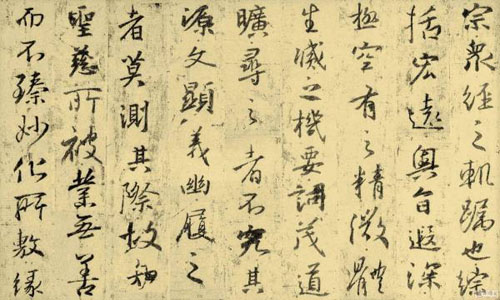 宗衆經之軌躅也綜
括宏遠奧旨遐深
極空有之精微體
生滅之機要詞茂道
曠尋之者不究其
源文顯義幽履之
者莫測其際故知
聖慈所被業无善
而不臻妙化所敷緣